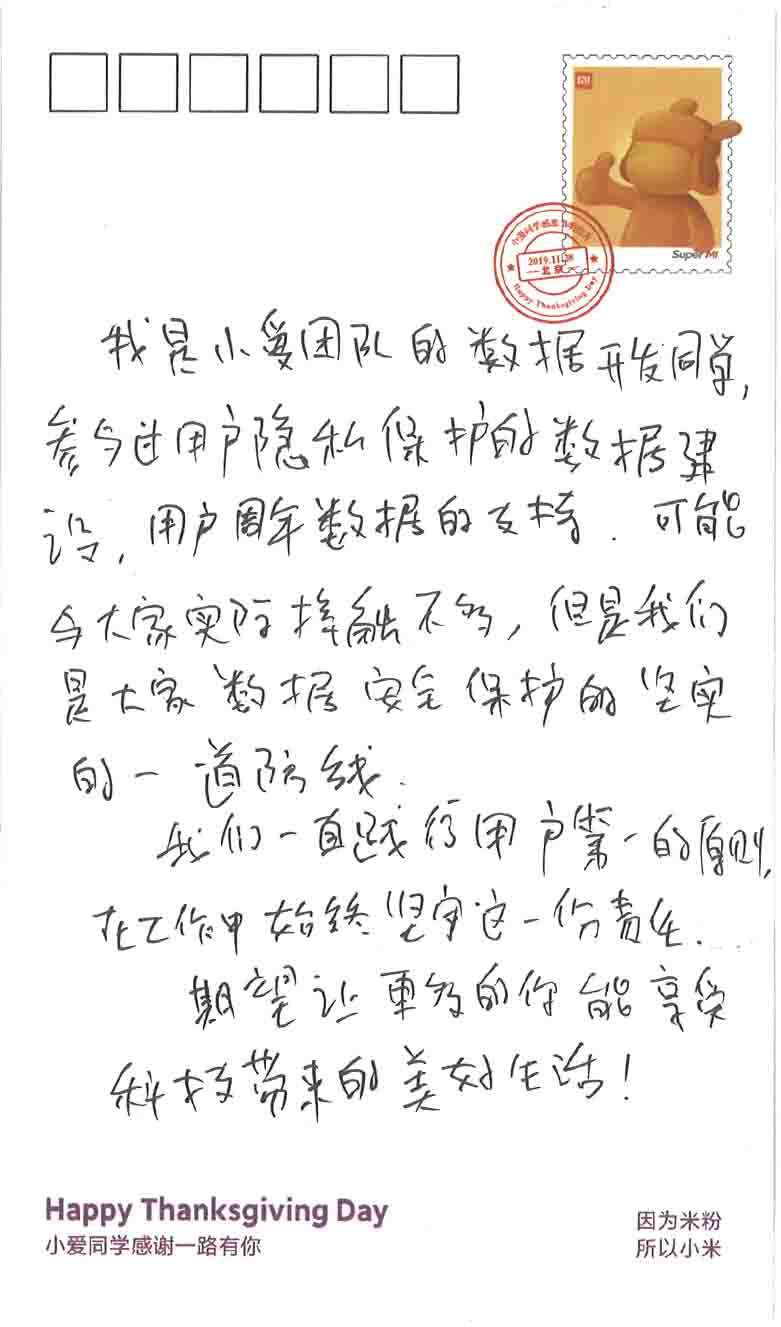 MI
Super MI
小爱同学感恩
2019.11.28
北京
Happy Thanksgiving Day
我是小爱团队的数据开发同学,
参与过用户隐私保护的数据建
设,用户周年数据的支持.可能
与大家实际接触不多,但是我们
是大家数据安全保护的坚实
的一道防线.
我们一直践行用户第一的原则,
在工作中始终坚守这一份责任.
期望让更多的你能享受
科技带来的美好生活!
Happy Thanksgiving Day
小爱同学感谢一路有你
因为米粉
所以小米